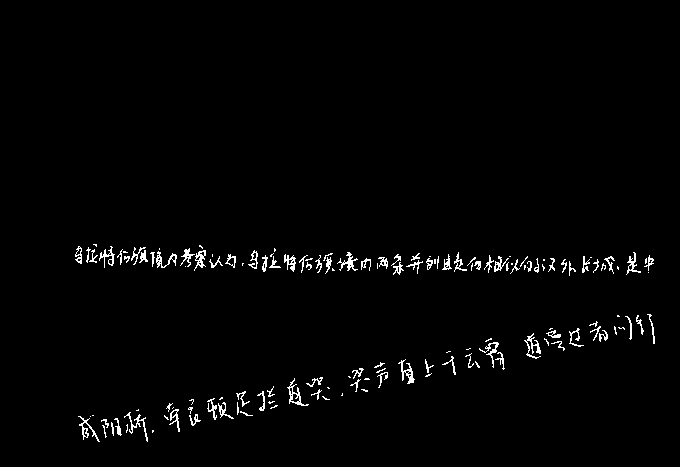 乌拉特后旗境内考察认为,乌拉特后旗境内两条并列且走向相似的汉外长城,是中
咸阳桥,牵衣顿足拦道哭,哭声直上干云霄 道旁过者问行